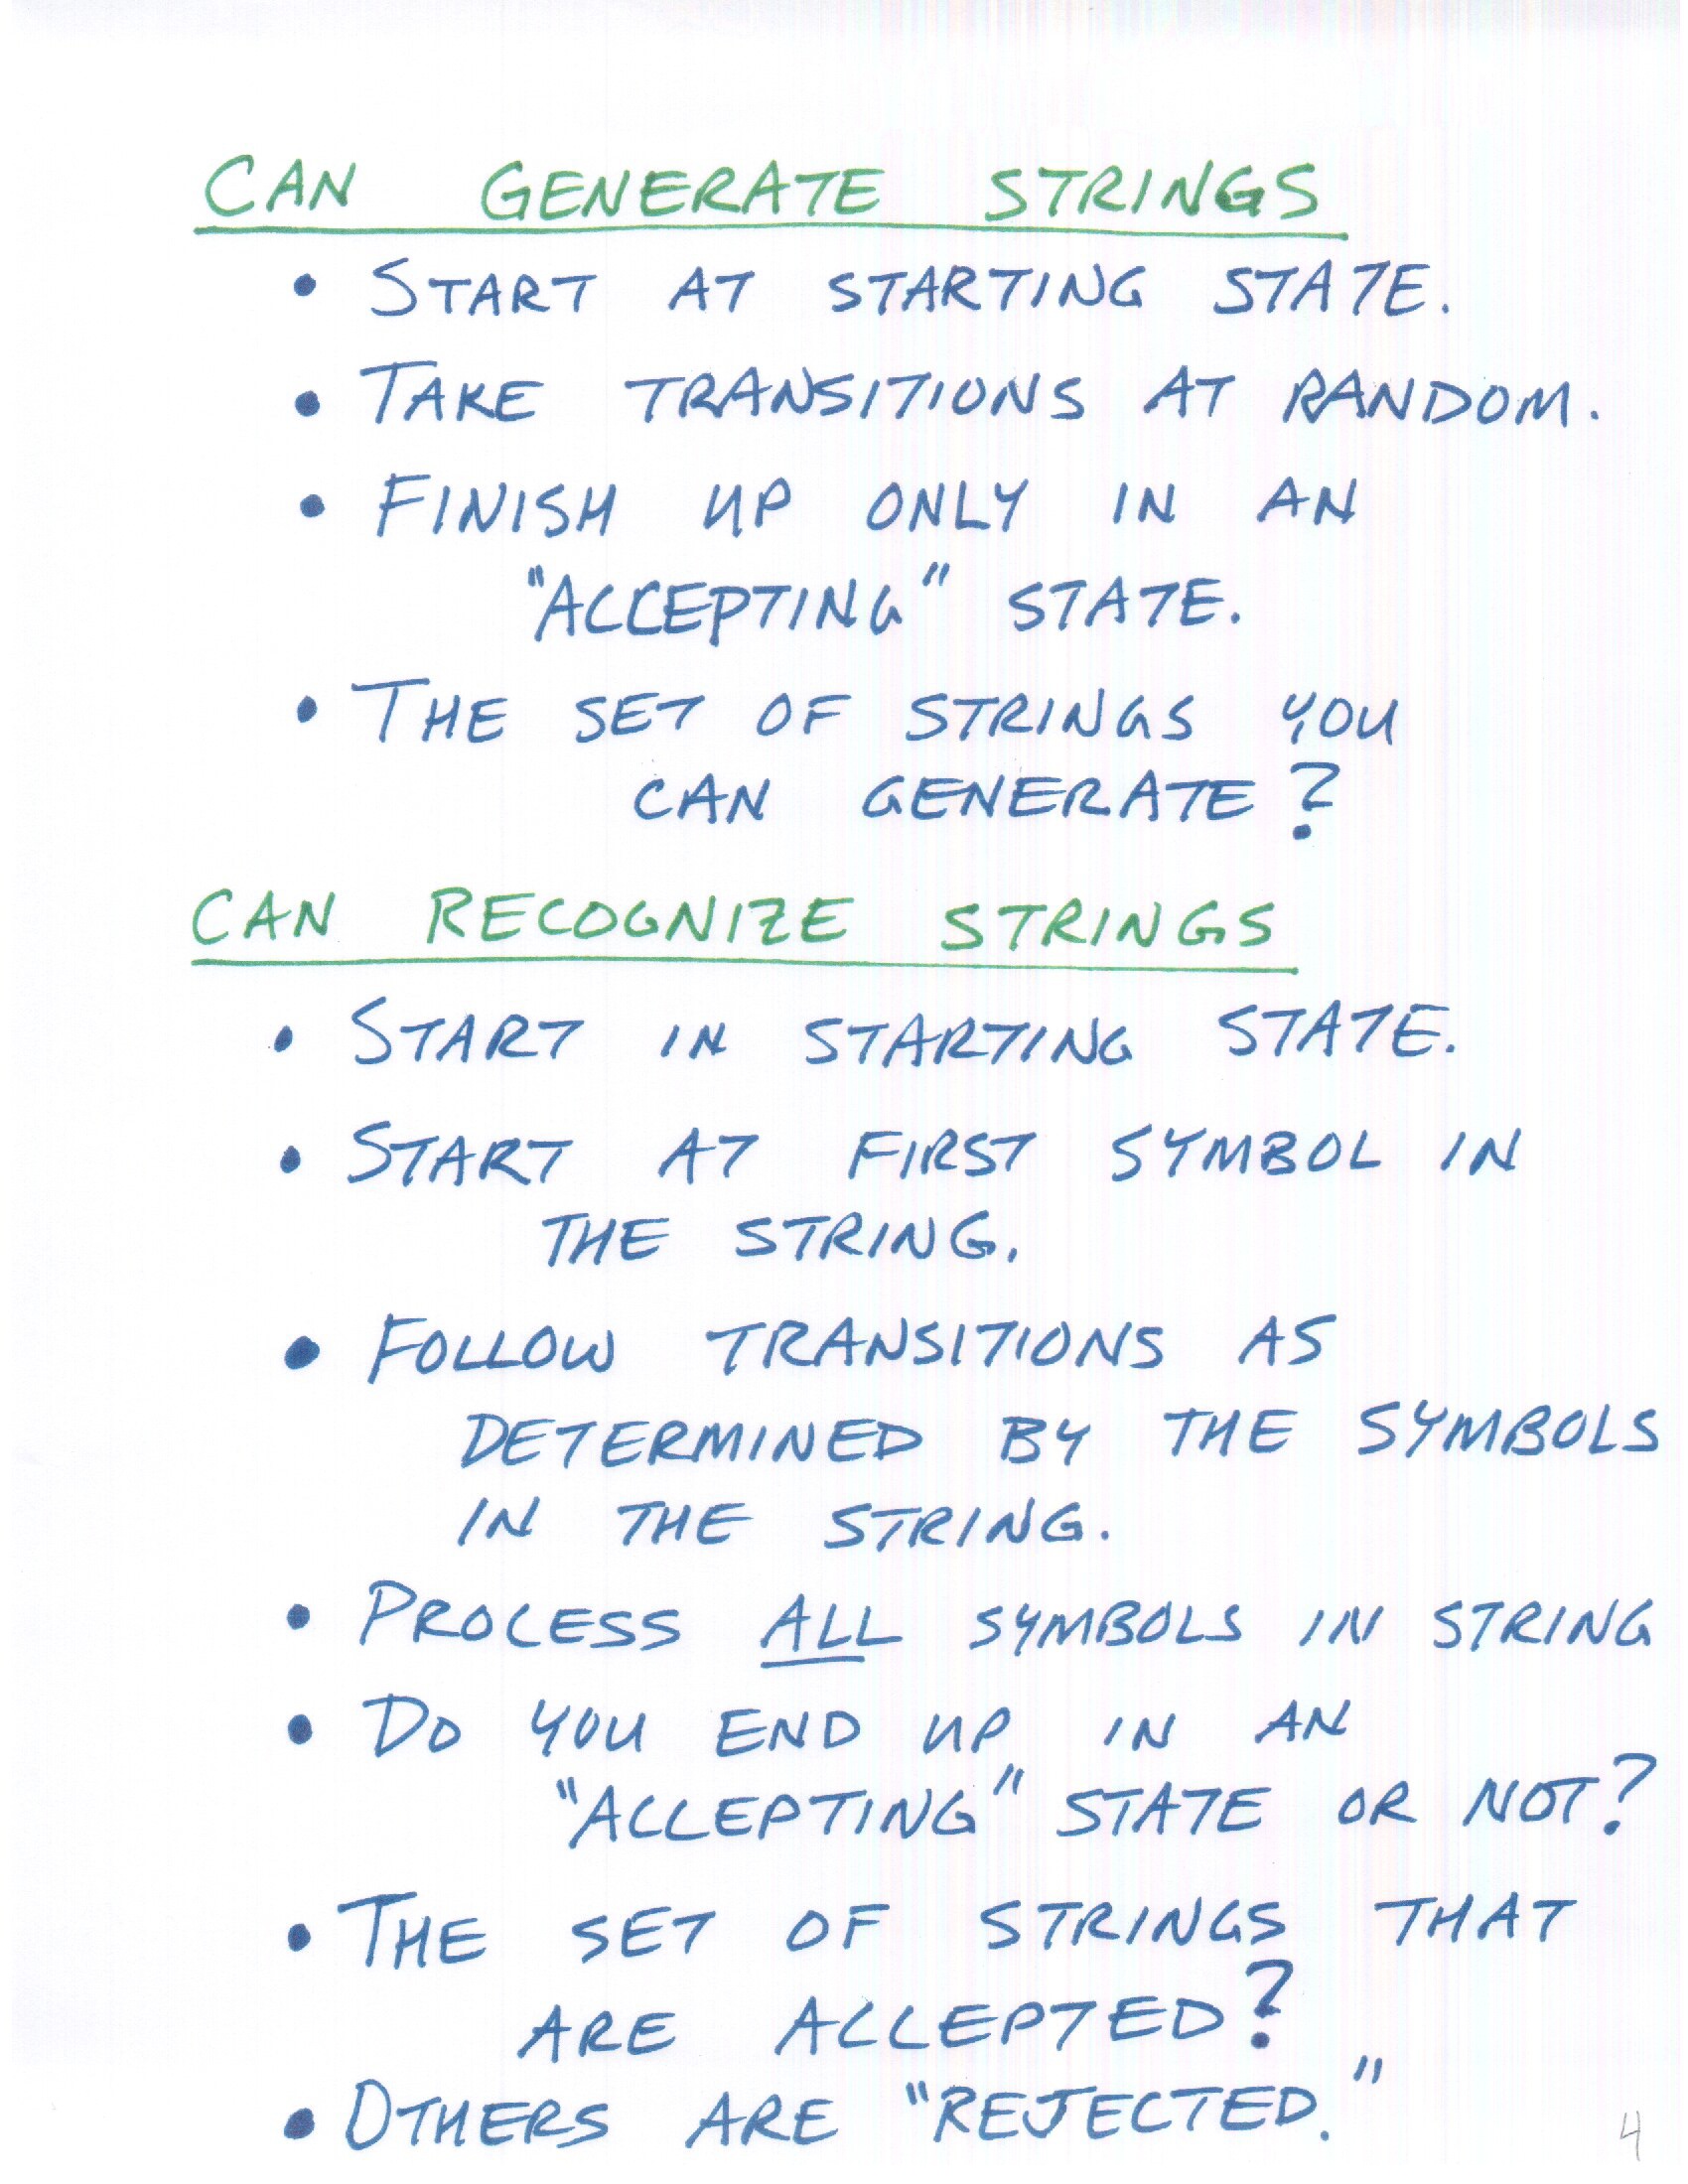 CAN GENERATE STRINGS
• START AT STARTING STATE.
• TAKE TRANSITIONS AT RANDOM.
• FINISH UP ONLY IN AN
"ACCEPTING" STATE.
• THE SET OF STRINGS YOU
CAN GENERATE?
CAN RECOGNIZE STRINGS
• START IN STARTING STATE.
• START AT FIRST SYMBOL IN
THE STRING.
• FOLLOW TRANSITIONS AS
DETERMINED BY THE SYMBOLS
IN THE STRING.
• PROCESS ALL SYMBOLS IN STRING
• DO YOU END UP IN AN
"ACCEPTING" STATE OR NOT?
• THE SET OF STRINGS THAT
ARE ACCEPTED?
• OTHERS ARE "REJECTED."
4